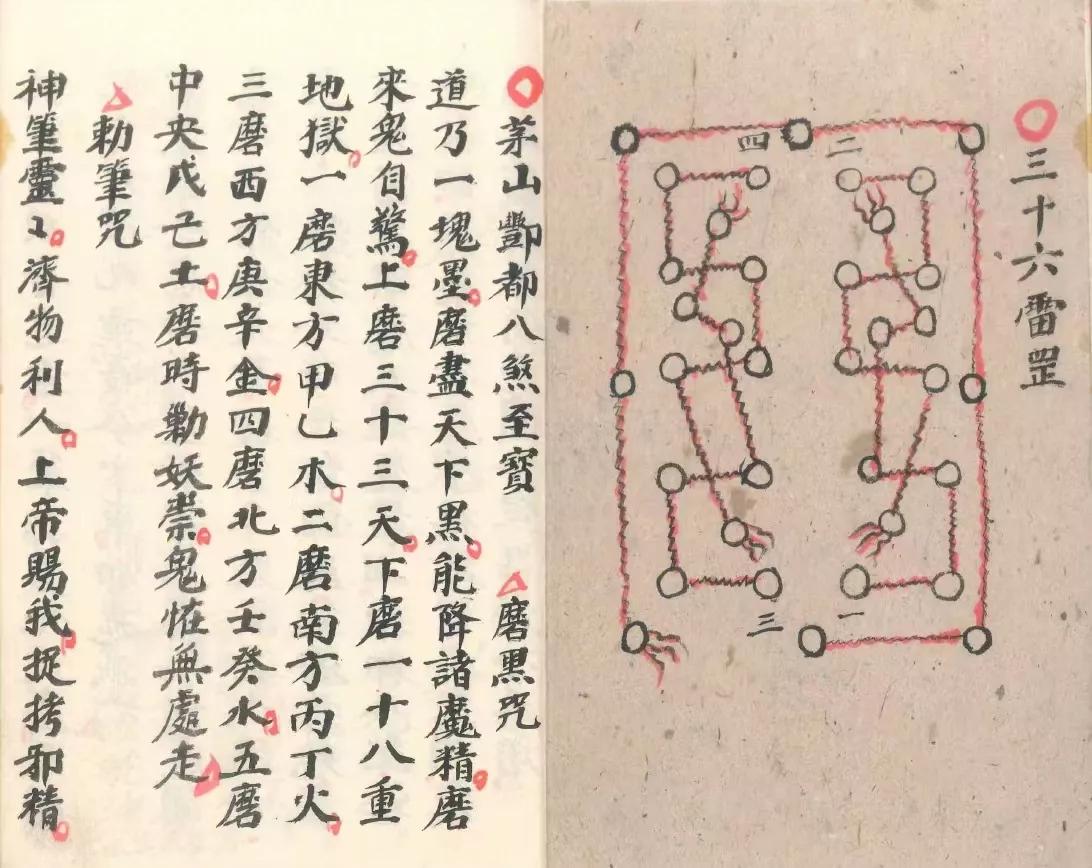 三十六雷罡
二
一
四
三
茅山酆都八煞至寶　磨黑咒
道乃一塊墨磨盡天下黑能降諸魔精磨
來鬼自驚上磨三十三天下磨一十八重
地獄一磨東方甲乙木二磨南方丙丁火
三磨西方庚辛金四磨北方壬癸水五磨
中央戊己土磨時勦妖祟鬼恠無處走
勅筆咒
神筆靈〻濟物利人上帝賜我捉拷邪精